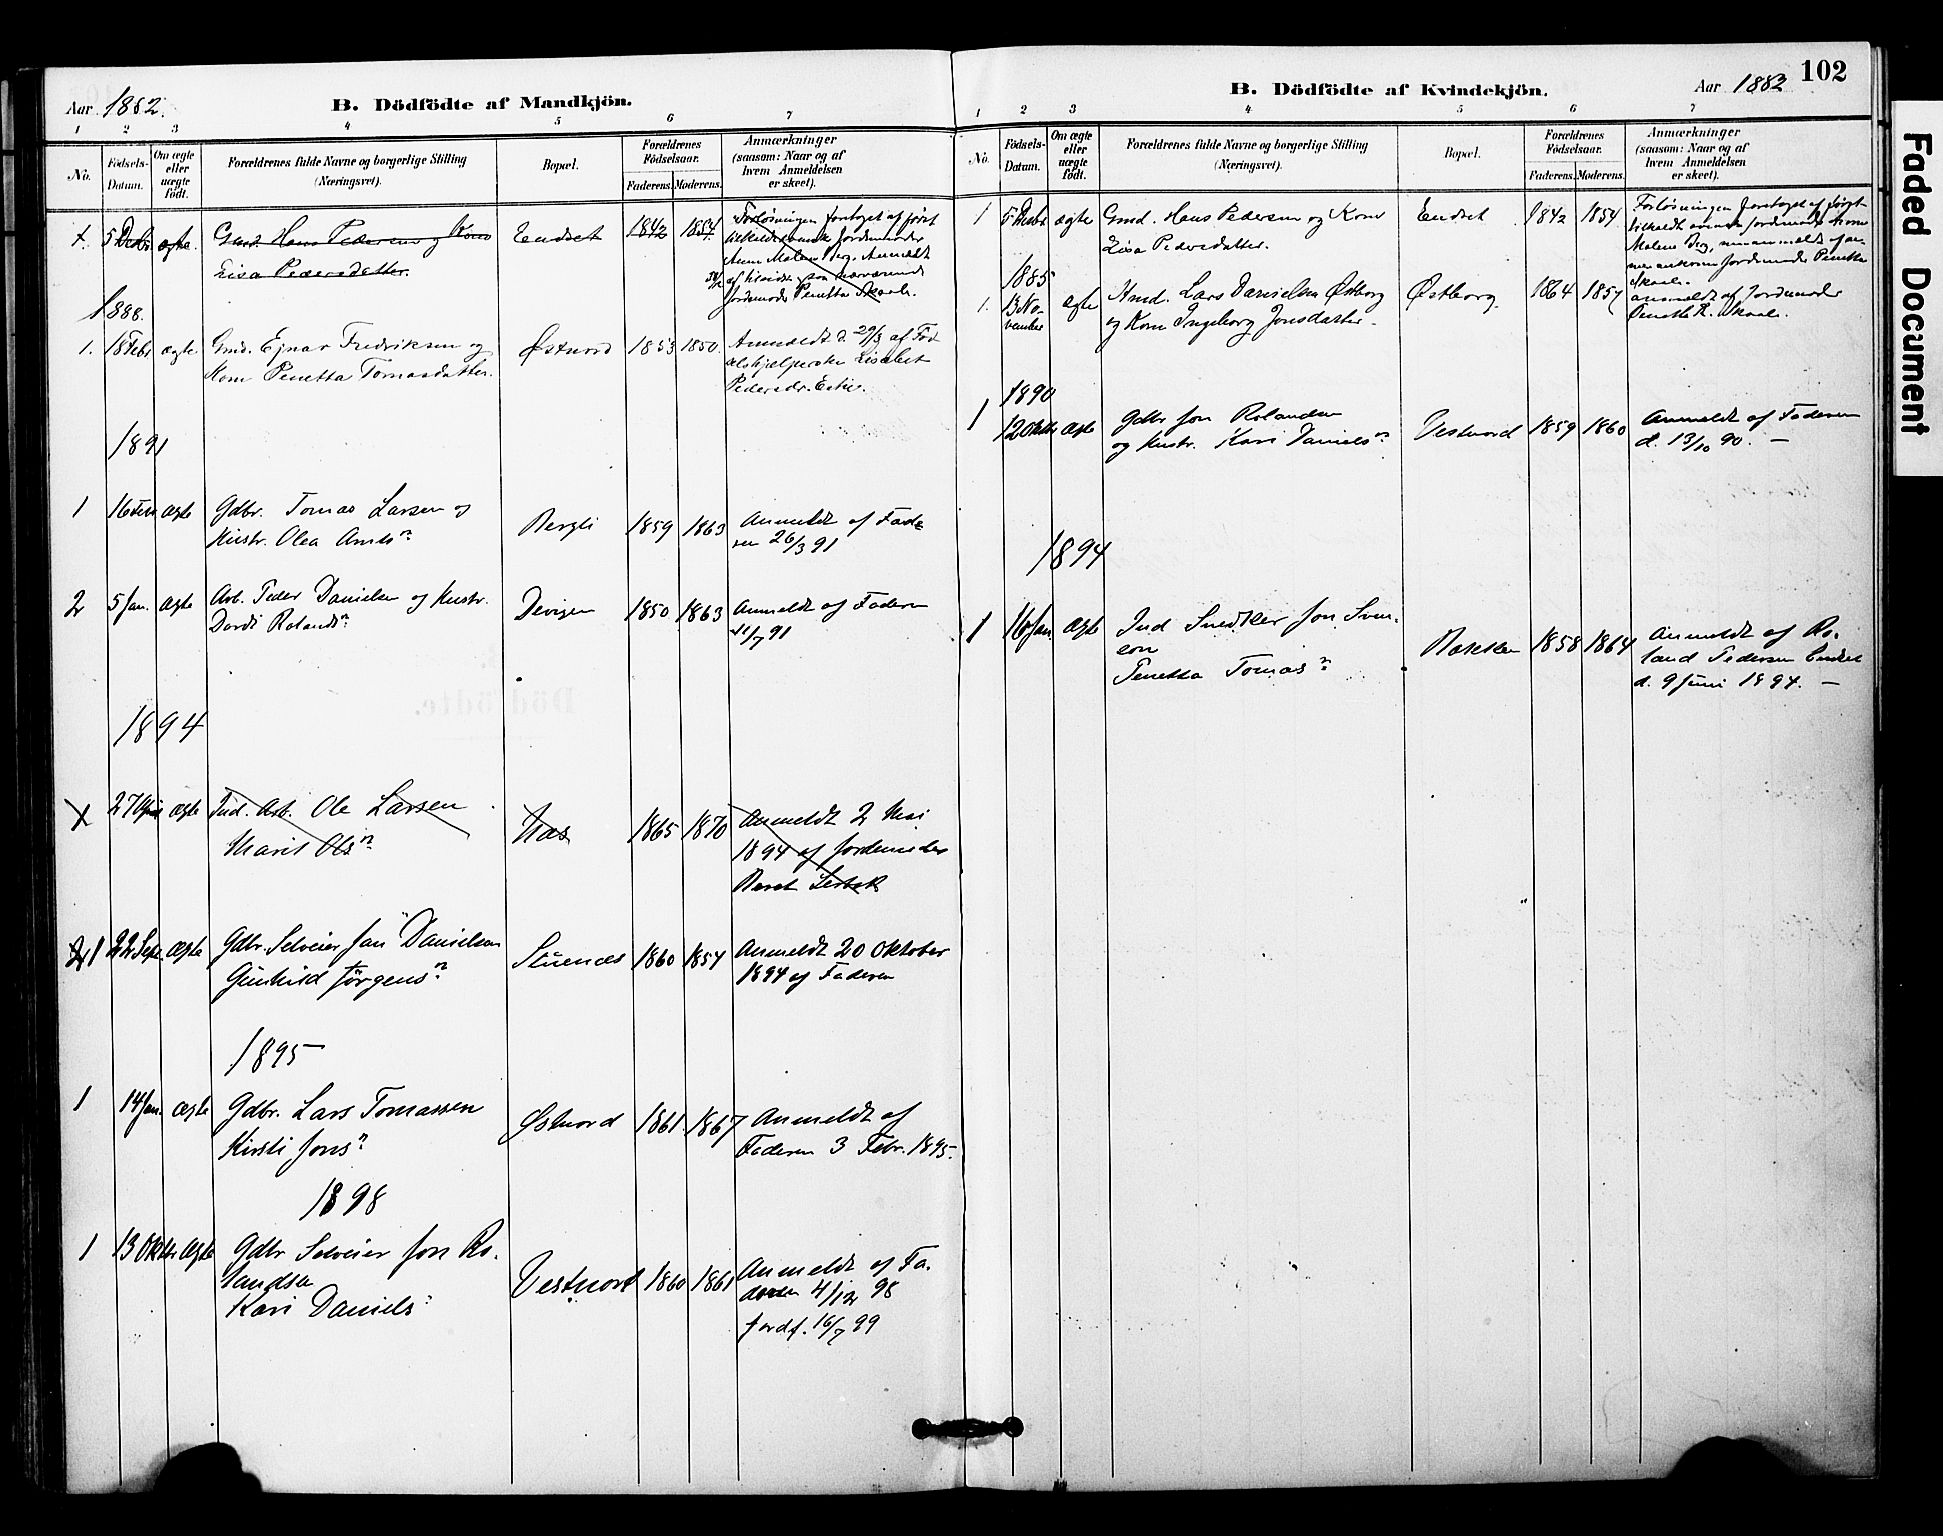 Aar 1882.
B. Dödfödte af Mandkjön.
1 2 3 4 5 6 7
No.
Födsels-
Datum.
Om ægte
eller
uægte
født.
Forældrenes fulde Navne og borgerlige Stilling
(Næringsvei).
Bopæl.
Forældrenes
Födselsaar.
Faderens. Moderens.
Anmærkninger
(saasom: Naar og af
hvem Anmeldelsen
er skeet).
5 Decbr ægte. Gmd. Hans Pedersen og Kone Endset 1842 1854
Lisa Pedersdatter.
Forløsningen foretaget af først
Anne Malene Berg. Anmeldt
Jordemoder Penetta Skaale.
1888.
1. 18 Febr ægte. Gmd. Ejnar Fredriksen og Østnord 1853 1850.
Kone Penetta Tomasdatter.
Anmeldt d. 29/3 af Fød
selshjælperske Lisabet
Pedersdr.
1891
1 16 ægte Gdbr. Tomas Larsen og Bergli 1859 1863
Hustr. Olea
Anmeldt af Fade
ren 26/3 91
2 5 Jan. ægte Arb. Peder Danielsen og Hustr. Devigen 1850 1863
Dordi Rolandsn.
Anmeldt af Faderen
11/7 91
1894
27 April ægte Ind. Arb. Ole Larsen Naes 1865 1870
Marit Olsn.
Anmeldt 2 Mai
1894 af Jordemoder
Beret
2 1 22 Sept. ægte Gdbr. Selveier Jon Danielsen Stuenæs 1860 1854
Gunhild Jörgensn.
Anmeldt 20 Oktober
1894 af Faderen
1895
1 14 Jan. ægte Gdbr. Lars Tomassen Østnord 1861 1867
Kirsti Jonsn.
Anmeldt af
Faderen 3 Febr. 1895.
1898
1 13 Oktbr ægte Gdbr Selveier Jon Ro-
landsen
Kari Daniels Vestnord 1860 1861
Anmeldt af Fa-
deren 4/12 98
Jordf. 16/7 99
102
B. Dödfödte af Kvindekjön.
Aar 1883
1 2 3 4 5 6 7
No.
Födsels-
Datum.
Om ægte
eller
uægte
födt.
Forældrenes fulde Navne og borgerlige Stilling
(Næringsvei).
Bopæl.
Forældrenes
Födselsaar.
Faderens. Moderens.
Anmærkninger
(saasom: Naar og af
hvem Anmeldelsen
er skeet).
1 5 Decbr ægte Gmd. Hans Pedersen og Kone Endset 1842 1854
Lisa Pedersdatter.
Forløsningen foretaget af først
tilkaldt Jordemoder Anne
Malene Berg,
Jordemoder Penetta
Skaale.
1885
1. 13 No-
vember ægte Kmd. Lars Danielsen Østborg Østborg. 1864 1857
og Kone Ingeborg Jonsdatter.
anmeldt af Jordemoder
Penetta R. Skaale.
1890
1 12 Oktbr ægte Gdbr Jon Rolandsen Vestnord 1859 1860
og Hustr. Kari Danielsn.
Anmeldt af Faderen
d. 13/10 90. —
1894
1 16 Jan ægte Ind Snedker Jon Sven-
sen
Penetta Tomasn. 1858 1864
Anmeldt af Ro-
land Pedersen Endset
d. 9 Juni 1894. —
Faded Document